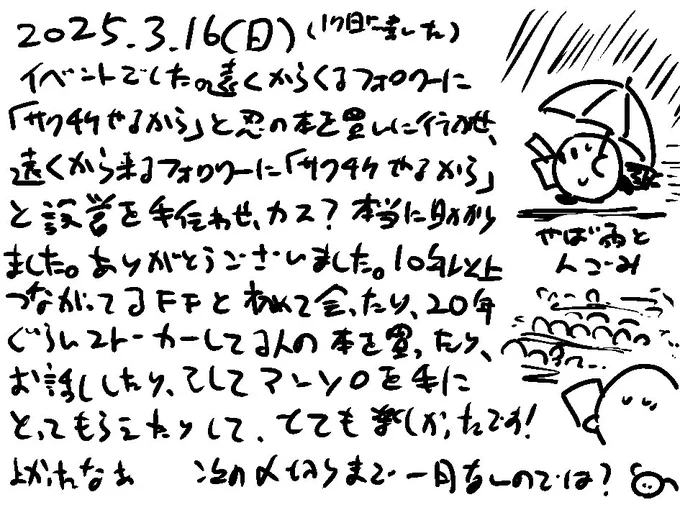 2025.3.16(日)(17日にました)
イベントでした。遠くからくるフォロワーに
「サクチケやるから」と忍の本を買いに行かせ、
遠くから来るフォロワーに「サクチケやるから」
と設営を手伝わせ、カス?本当に助かり
ました。ありがとうございました。10年以上
つながってるFFと初めて会ったり、20年
ぐらいストーカーしてる人の本を買ったり、
お話ししたり、そしてマンソロを手に
とってもらえたりして、とても楽しかったです!
よかったなぁ 次の〆切りまで一月ないのでは?
やば雨と
人ごみ